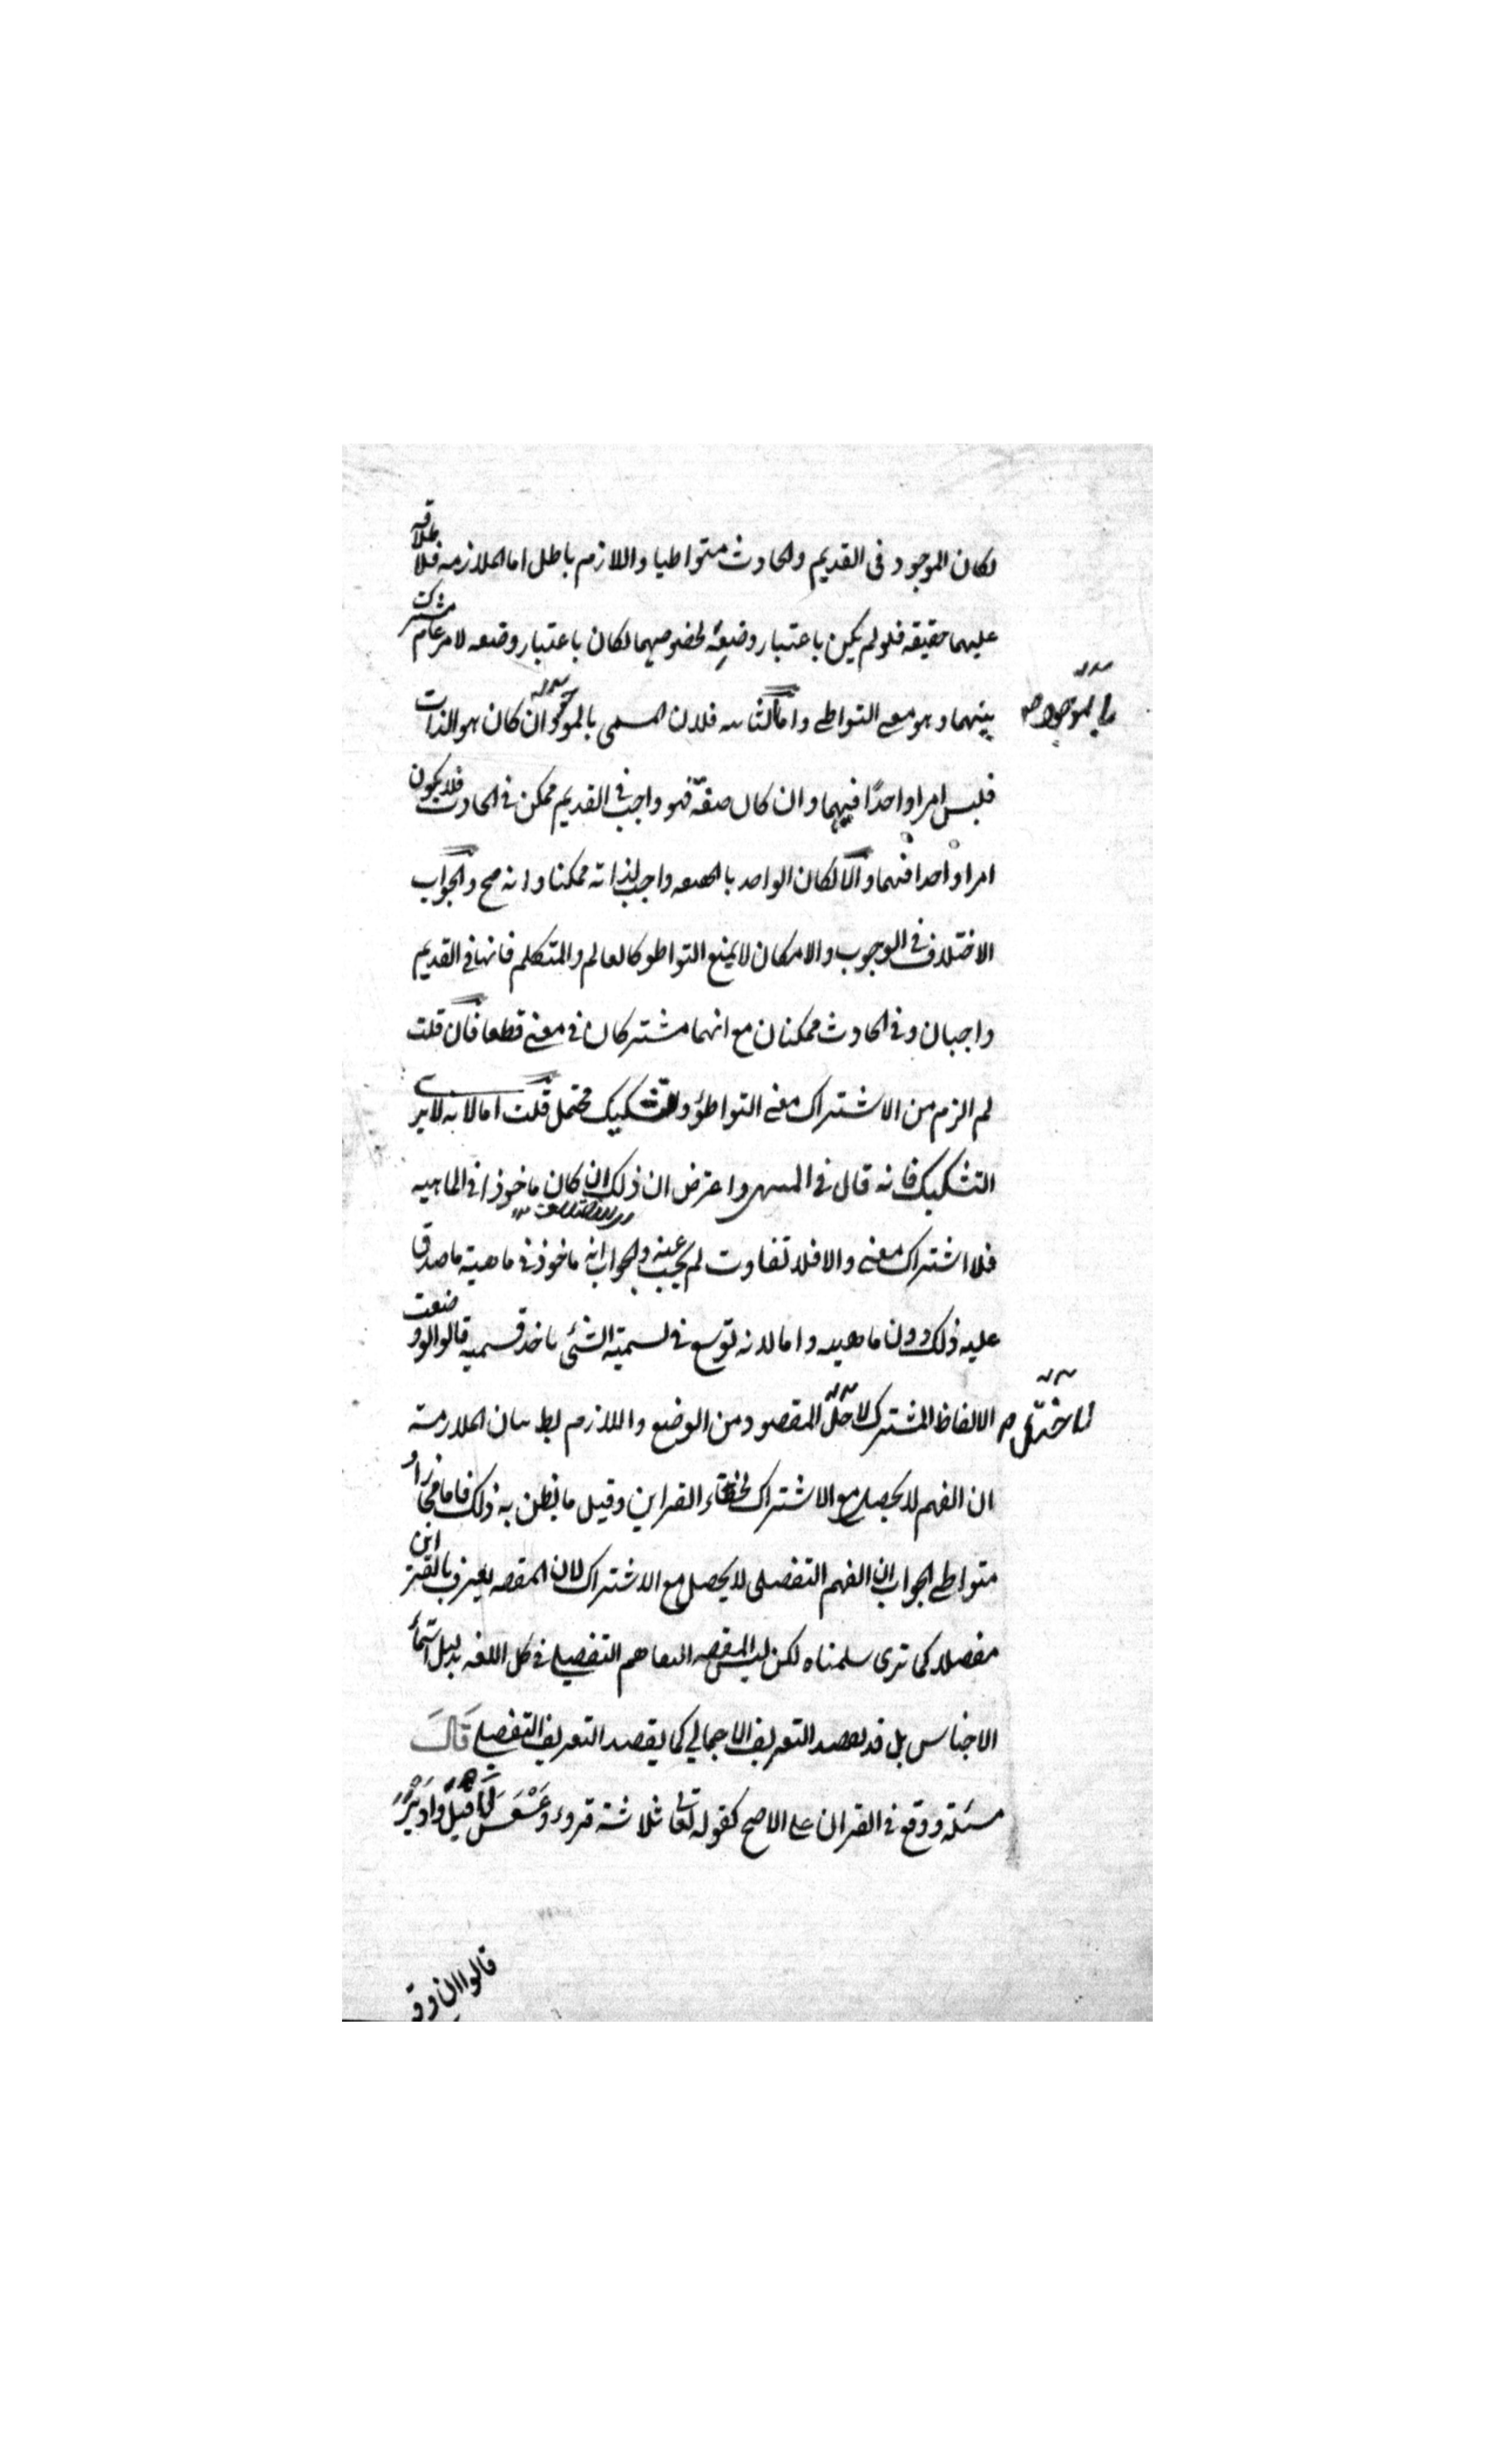 لكان الموجود فى القديم والحادث متواطيا واللازم باطل اما الملازمة فلاطلاقه
عليهما حقيقه فلو لم يكن باعتبار وضعه لخصوصيهما لكان باعتبار وضعه لامر عام مشترك
بينهما وهو معنى التواطى واما الثانيه فلان المسمى بالموجود ان كان هو الذات
بالموجود صح
فليس امرا واحدًا فيهما وان كان صفة فهو واجب فى القديم ممكن فى الحادث فلا يكون
امرا واحدا فيهما والا لكان الواحد بالحقيقه واجب لذاته ممكنا وانه مح والجواب
الاختلاف فى الوجوب والامكان لا يمنع التواطو كالعالم والمتكلم فانها فى القديم
واجبان وفى الحادث ممكنان مع انهما مشتركان فى معنى قطعا فان قلت
لم الزم من الاشتراك معنى التواطؤ والتشكيك محتمل قلت اما لانه لا يرى
التشكيك فانه قال فى المنتهى واعترض ان ذلك ان كان ماخوذا فى الماهيه
فلا اشتراك معنى والا فلا تفاوت لم يجب عنه والجواب انه ماخوذ فى ماهية ما صدق
عليه ذلك دون ماهيته واما لانه توسع فى تسمية الشئ باحد قسميه قالوا لو وضعت
الالفاظ المشتركة لاختل المقصود من الوضع واللازم بط بيان الملازمة
لاختل صح
ان الفهم لا يحصل مع الاشتراك لخفاء القراين وقيل ما يظن به ذلك فاما مجاز او
متواطى الجواب ان الفهم التفصلى لا يحصل مع الاشتراك لان المقصود يعرف بالقراين
مفصلا كما ترى سلمناه لكن ليس المقصود التفاهم التفصيلى فى كل اللغه بدليل اسماء
الاجناس بل قد يقصد التعريف الاجمالى كما يقصد التعريف التفصيلى قَالَ
مسئلة ووقع فى القران على الاصح كقوله تعالى ثلاثة قروء وعَسْعَسَ لاقبل وادبر
قالوا ان وقع